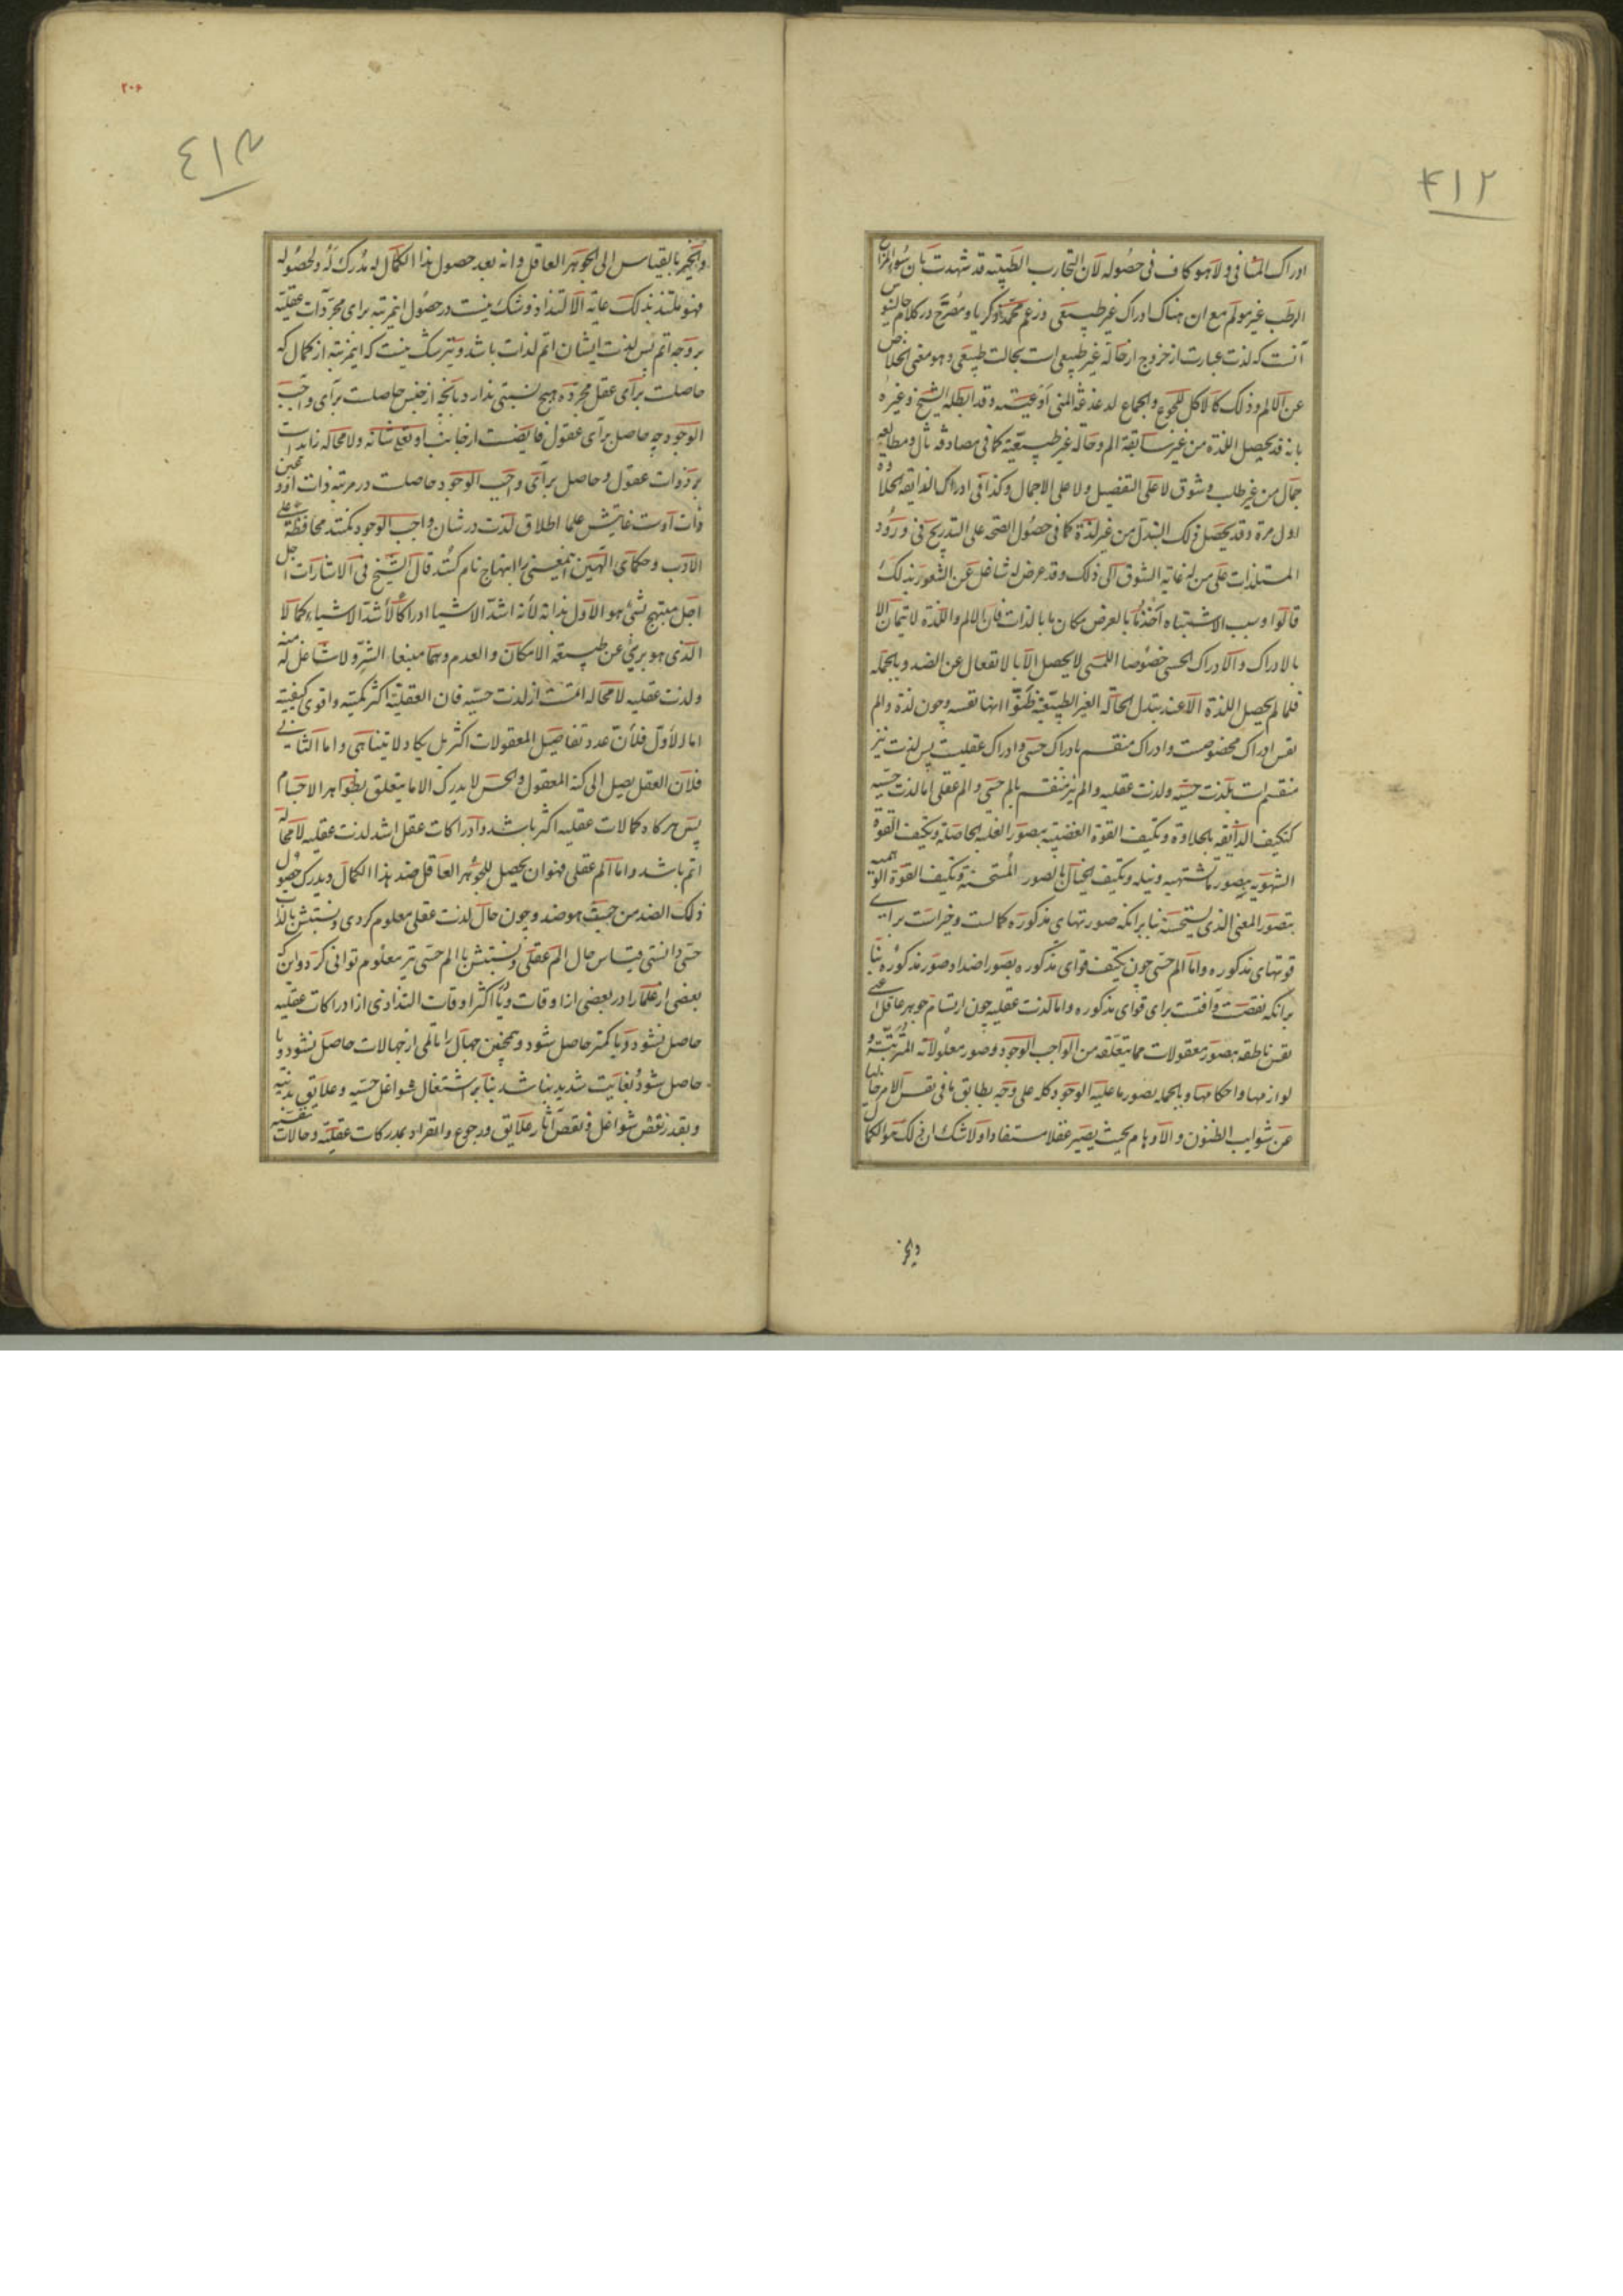 ۴۱۲
ادراک المنافی ولا هو کاف فی حصوله لان التجارب الطبیة قد شهدت بان سوء المزاج
الرطب غیر مولم مع ان هناک ادراک غیر طبیعی و زعم محمد زکریا و مصرح در کلام جالینوس
آنست که لذت عبارت از خروج از حالة غیر طبیعی است بحالت طبیعی و هو معنی الخلاص
عن الالم و ذلک کالاکل للجوع والجماع لدغدغة المنی اوعیته و قد ابطله الشیخ و غیره
بانه قد یحصل اللذة من غیر سابقة الم و حالة غیر طبیعیة کما فی مصادفة مال و مطالعة
جمال من غیر طلب و شوق لا علی التفصیل ولا علی الاجمال و کذا فی ادراک الذایقة الحلاوة
اول مرة و قد یحصل ذلک التبدل من غیر لذة کما فی حصول الصحة علی التدریج و فی ورود
المستلذات علی من له غایة الشوق الی ذلک و قد عرض له شاغل عن الشعور بذلک
قالوا و سبب الاشتباه اخذ ما بالعرض مکان ما بالذات فان الالم واللذة لا یتمان الا
بالادراک والادراک الحسی خصوصا اللمسی لا یحصل الا بالانفعال عن الضد و بالجمله
فلما لم یحصل اللذة الا عند تبدل الحالة الغیر الطبیعیة ظنوا انها نفسه و چون لذة و الم
نفس ادراک مخصوصست و ادراک منقسم بادراک حسی و ادراک عقلیست پس لذت نیز
منقسم است بلذت حسیه و لذت عقلیه و الم نیز منقسم بالم حسی و الم عقلی اما لذت حسیه
کتکیف الذائقه بالحلاوة و تکیف القوة الغضبیه بصور الغلبه الحاصلة و تکیف القوة
الشهویه بصور ما تشتهیه و نیله و تکیف الخیال بالصور المستحسنة و تکیف القوة الوهمیه
بتصور المعنی الذی یستحسنه بنا برانکه صورتهای مذکوره کمالست و خیراست برای
قوتهای مذکوره و اما الم حسی چون تکیف قوای مذکوره بصور اضداد صور مذکوره بنا
برانکه نقصت و آفتست برای قوای مذکوره و اما لذت عقلیه چون ارتسام جوهر عاقل یعنی
نفس ناطقه بصور معقولات مما یتعلقه من الواجب الوجود و صور معلولاته المترتبة و
لوازمها و احکامها و بالجمله بصور ما علیه الوجود کله علی وجه یطابق ما فی نفس الامر خالیا
عن شوایب الظنون والاوهام بحیث یصیر عقلا مستفادا ولا شک ان ذلک هو الکمال
والخیر
۲۰۶
٤١٣
والخیر بالقیاس الی الجوهر العاقل و انه بعد حصول هذا الکمال له مدرک له و لحصوله
فهو ملتذ بذلک غایة الالتذاذ و شک نیست در حصول اینمرتبه برای مجردات عقلیه
بر وجه اتم پس لذت ایشان اتم لذات باشد و نیز شک نیست که اینمرتبه از کمال که
حاصلست برای عقل مجرده هیچ نسبتی ندارد بانچه از جنس حاصلست برای واجب
الوجود چه حاصل برای عقول فایضست از جانب او تعالی شانه ولا محاله زایدست
بر ذوات عقول و حاصل برای واجب الوجود حاصلست در مرتبه ذات او و عین
ذات اوست غایتش علما اطلاق لذت در شان واجب الوجود نکنند محافظة علی
الادب و حکمای الهیین اینمعنی را ابتهاج نام کنند قال الشیخ فی الاشارات اجل
اجل مبتهج بشئ هو الاول بذاته لانه اشد الاشیاء ادراکا لاشد الاشیاء کمالا
الذی هو برئ عن طبیعة الامکان والعدم و هما منبعا الشر ولا شاغل له عنه
و لذت عقلیه لا محاله اتمست از لذت حسیه فان العقلیة اکثر کمیة و اقوی کیفیة
اما الاول فلان عدد تفاصیل المعقولات اکثر بل یکاد لا یتناهی و اما الثانی
فلان العقل یصل الی کنه المعقول والحس لا یدرک الا ما یتعلق بظواهر الاجسام
پس هرگاه کمالات عقلیه اکثر باشد و ادراکات عقل اشد لذت عقلیه لا محاله
اتم باشد و اما الم عقلی فهو ان یحصل للجوهر العاقل ضد هذا الکمال و یدرک حصول
ذلک الضد من حیث هو ضد و چون حال لذت عقلی معلوم کردی و نسبتش با لذات
حسی دانستی قیاس حال الم عقلی و نسبتش با الم حسی نیز معلوم توانی کرد و اینکه
بعضی از علما را در بعضی از اوقات و یا اکثر اوقات التذاذی از ادراکات عقلیه
حاصل نشود و یا کمتر حاصل شود و همچنین جهال را المی از جهالات حاصل نشود و یا
حاصل شود بغایت شدید نباشد بنا بر اشتغال شواغل حسیه و علایق بدنیه
و بقدر نقض شواغل و نقص آثار علایق و رجوع و انفراد بمدرکات عقلیه و حالات نفسیه